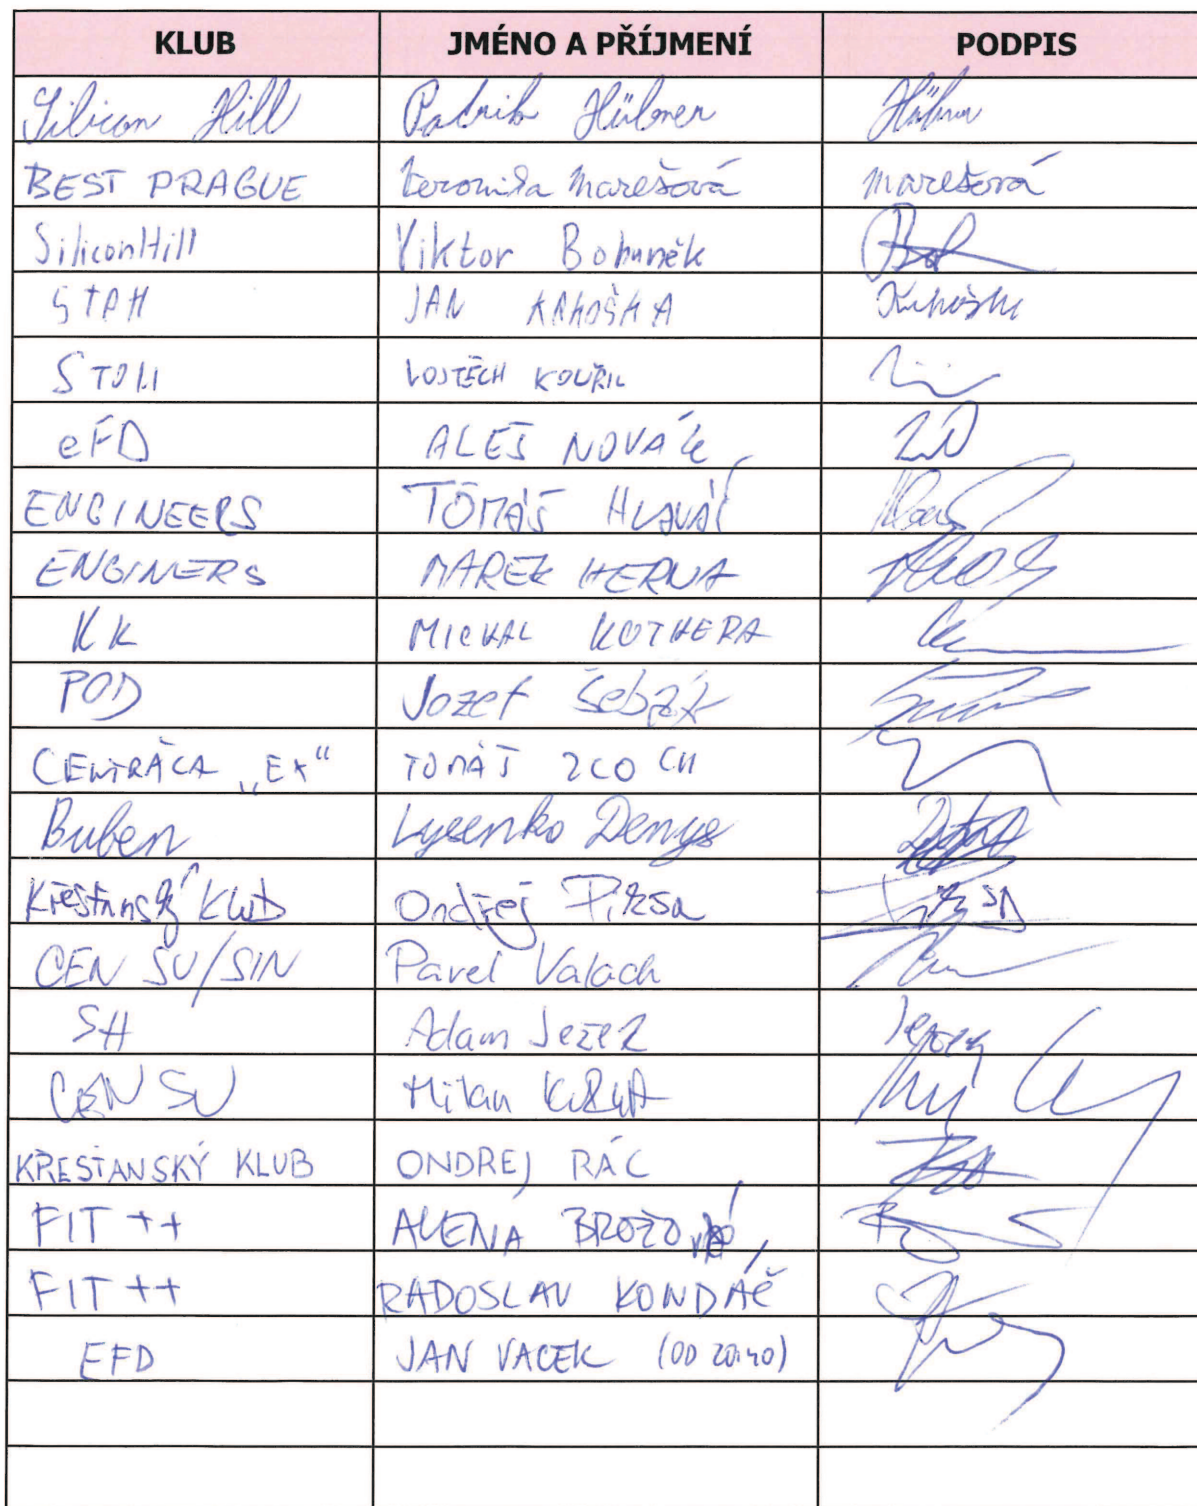 KLUB JMÉNO A PŘÍJMENÍ PODPIS
Silicon Hill Patrik Hübner Hübner
BEST PRAGUE Veronika Marešová Marešová
SiliconHill Viktor Bohuněk
JAN
VOJTĚCH KOUŘIL
eFD ALEŠ NOVÁK
ENGINEERS TOMÁŠ HLAVÁČ
ENGINERS MAREK HERNA
KK MICHAL KOTHERA
POD Jozef Šebák
CENTRÁCA „EX“ TOMÁŠ ZCO CH
Buben Lysenko Denys
Křesťanský klub Ondřej Piksa
CEN SU/SIN Pavel Valach
SH Adam Jezek
CEN SU Milan
KŘESŤANSKÝ KLUB ONDREJ RÁC
FIT ++ ALENA BROŽOVÁ
FIT ++ RADOSLAV KONDÁČ
EFD JAN VACEK (OD 20:40)